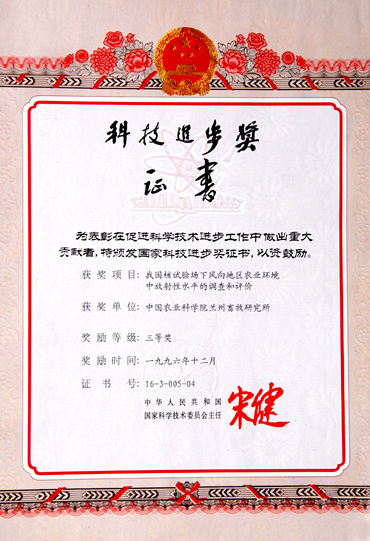 科技进步奖
证书
为表彰在促进科学技术进步工作中做出重大
贡献者，特颁发国家科技进步奖证书，以资鼓励。
获奖项目：我国核试验场下风向地区农业环境
中放射性水平的调查和评价
获奖单位：中国农业科学院兰州畜牧研究所
奖励等级：三等奖
奖励时间：一九九六年十二月
证书号：16-3-005-04
中华人民共和国
国家科学技术委员会主任
宋健